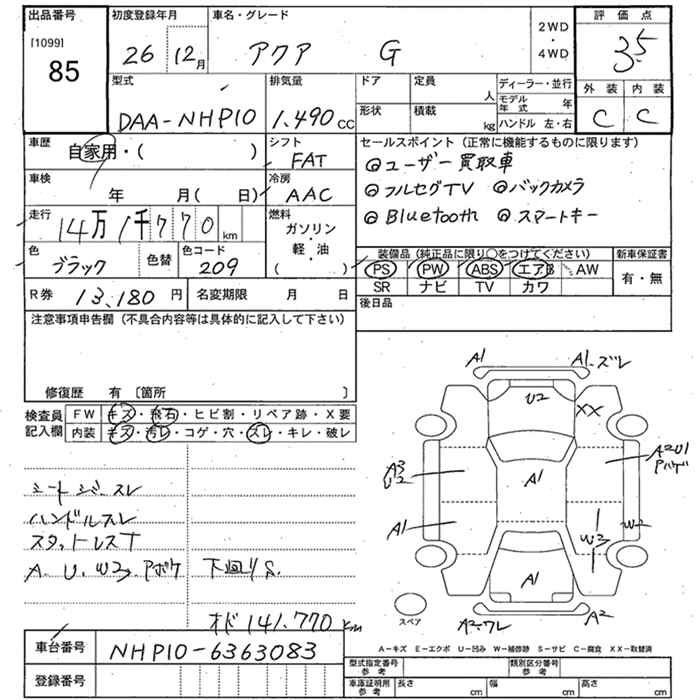 出品番号 初度登録年月 車名・グレード 評価点
[1099] 85 26 12月 アクア G 2WD・4WD 3.5
型式 排気量 ドア 定員 人 ディーラー・並行 外装 内装
DAA-NHP10 1.490cc 形状 積載 kg モデル年式 年 ハンドル 左・右 C C
車歴 自家用・( ) シフト FAT セールスポイント(正常に機能するものに限ります)
◎ユーザー買取車
車検 年 月( 日) 冷房 AAC ◎フルセグTV ◎バックカメラ
走行 14万1千770km 燃料 ガソリン・軽・油 ( ) ◎Bluetooth ◎スマートキー
色 ブラック 色替 色コード 209 装備品(純正品に限り○をつけてください) 新車保証書
PS PW ABS エアB AW 有・無
R券 13,180円 名変期限 月 日 SR ナビ TV カワ
後日品
注意事項申告欄(不具合内容等は具体的に記入して下さい)
修復歴 有 〔箇所 〕
検査員記入欄 FW キズ・飛石・ヒビ割・リペア跡・X要
内装 キズ・汚レ・コゲ・穴・スレ・キレ・破レ
シートジミ・スレ
ハンドルスレ
スタットレスT
A.U.W3.Aボケ 下回りS.
オド141,770km
A1 A1.ズレ
U2 XX
A3 U2 A1 A2U1 Aハゲ
A1 W3 W2
A1
スペア A2.ワレ A2
A-キズ E-エクボ U-凹み W-補修跡 S-サビ C-腐食 XX-取替済
車台番号 NHP10-6363083 型式指定番号参考 類別区分番号参考
登録番号 車庫証明用参考 長さ cm 幅 cm 高さ cm